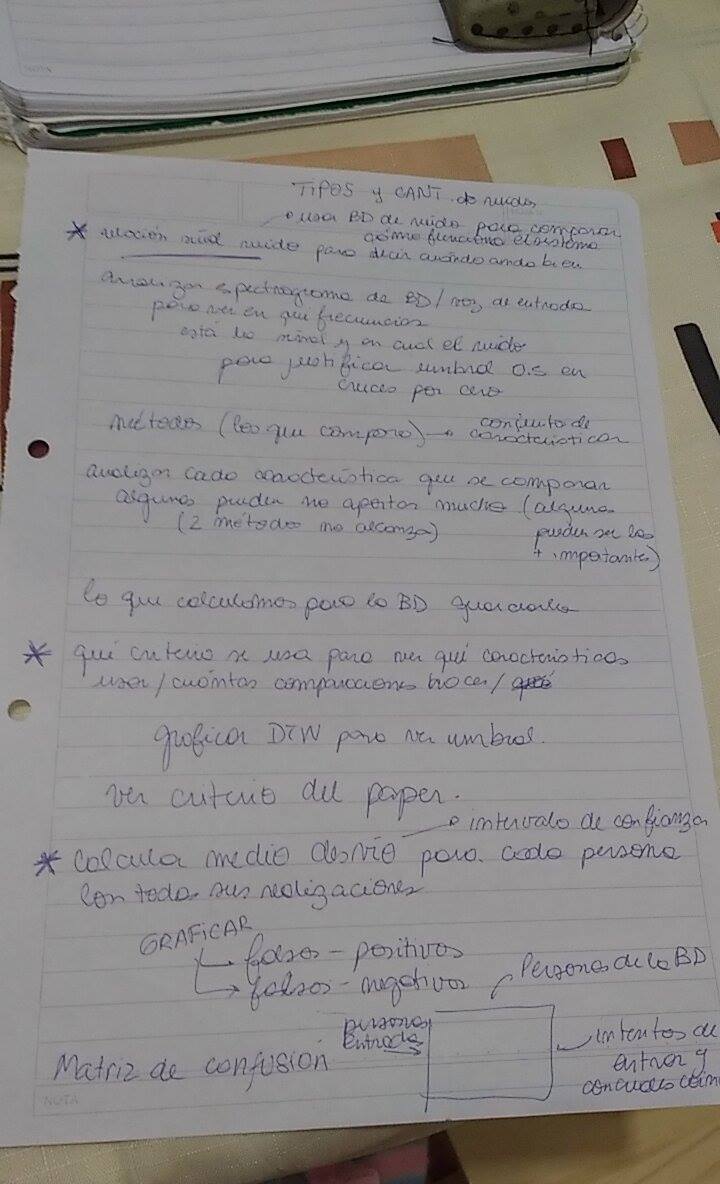 TIPOS y CANT. de ruidos
→ usar BD de ruido para comparar
cómo funciona el sistema
* relación señal ruido para decir cuándo anda bien
analizar espectrograma de BD/voz de entrada
para ver en qué frecuencias
está la señal y en cual el ruido
para justificar umbral 0.5 en
cruces por cero
métodos (los que comparo) → conjunto de
características
analizar cada característica que se comparan
algunas pueden no aportar mucho (alguna
(2 métodos no alcanza) pueden ser las
+ importantes)
lo que calculamos para la BD guardarlo
* qué criterio se usa para ver qué características
usar/cuántas comparaciones hacer/
graficar DTW para ver umbral.
ver criterio del paper.
→ intervalo de confianza
* calcula media desvío para cada persona
con todas sus realizaciones
GRAFICAR
→ falsos-positivos
→ falsos-negativos
Personas de la BD
personas
entrada
Matriz de confusión
intentos de
entrar y
NOTA